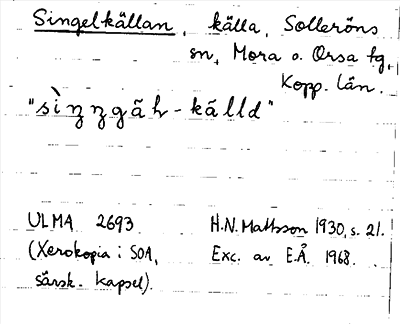 Singelkällan, källa, Solleröns
sn, Mora o. Orsa tg,
Kopp. län.
"sìŋŋgäh-källd"
ULMA 2693 H.N. Mattsson 1930, s. 21.
(Xerokopia i SOA, Exc. av E.Å. 1968.
särsk. kapsel).